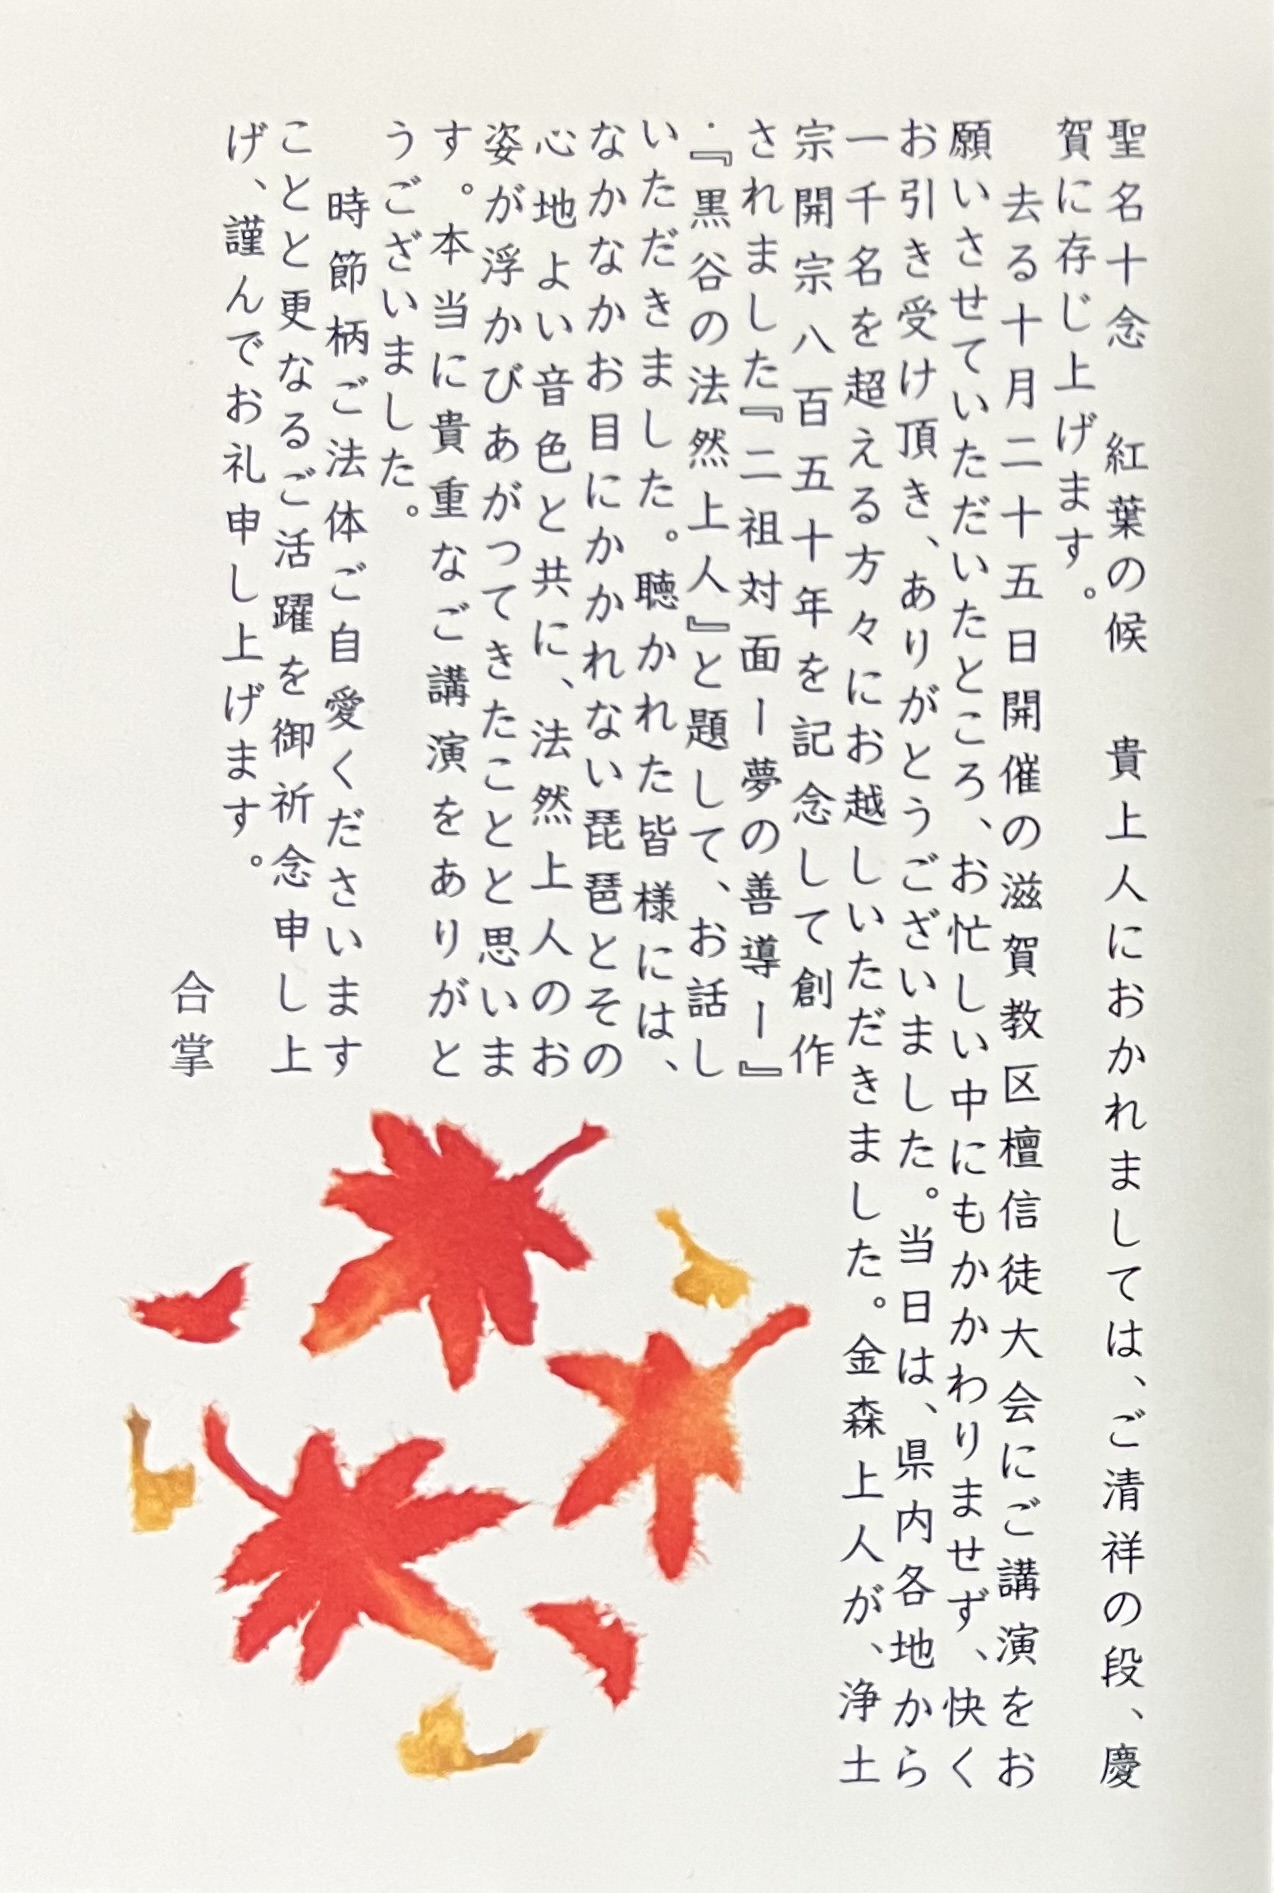 聖名十念　紅葉の候　貴上人におかれましては、ご清祥の段、慶
賀に存じ上げます。
　去る十月二十五日開催の滋賀教区檀信徒大会にご講演をお
願いさせていただいたところ、お忙しい中にもかかわりませず、快く
お引き受け頂き、ありがとうございました。当日は、県内各地から
一千名を超える方々にお越しいただきました。金森上人が、浄土
宗開宗八百五十年を記念して創作
されました『二祖対面ー夢の善導ー』
・『黒谷の法然上人』と題して、お話し
いただきました。聴かれた皆様には、
なかなかお目にかかれない琵琶とその
心地よい音色と共に、法然上人のお
姿が浮かびあがってきたことと思いま
す。本当に貴重なご講演をありがと
うございました。
　時節柄ご法体ご自愛くださいます
ことと更なるご活躍を御祈念申し上
げ、謹んでお礼申し上げます。
合掌